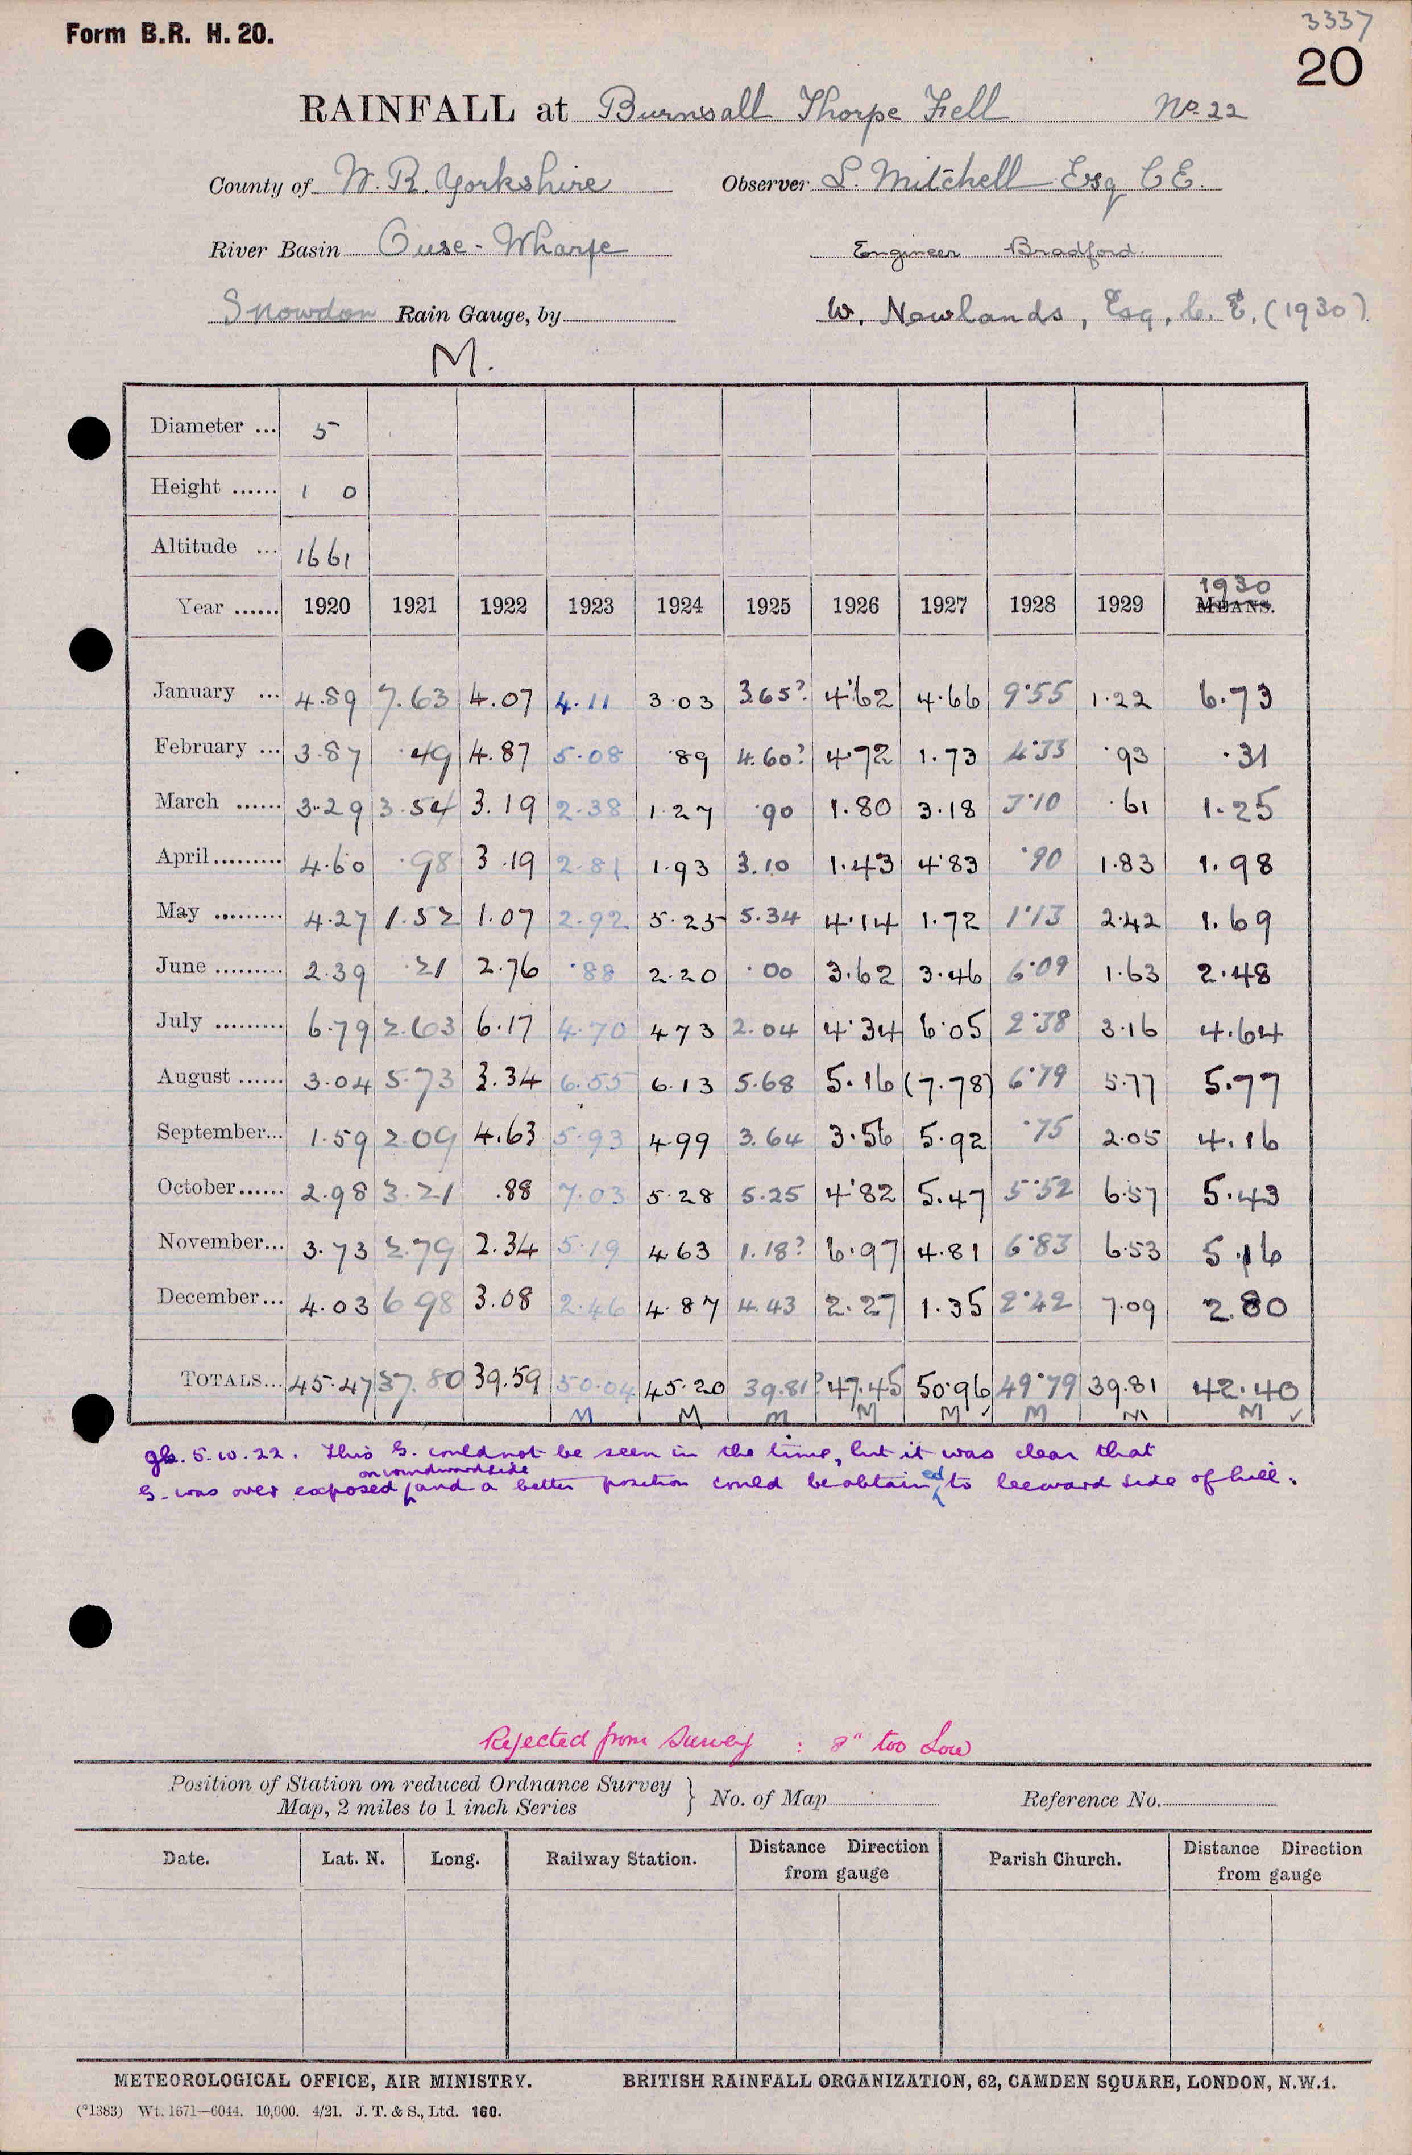 Form B.R. H. 20.
3337
20
RAINFALL at Burnsall Thorpe Fell No 22
County of W. R. Yorkshire Observer L. Mitchell Esq C E.
River Basin Ouse - Wharfe Engineer Bradford.
Snowdon Rain Gauge, by W. Newlands, Esq. C. E. (1930)
M.
Diameter ... 5
Height ...... 1 0
Altitude ... 1661
Year ...... 1920 1921 1922 1923 1924 1925 1926 1927 1928 1929 1930 MEANS.
January ... 4.89 7.63 4.07 4.11 3.03 3.65? 4.62 4.66 9.55 1.22 6.73
February ... 3.87 .49 4.87 5.08 .89 4.60? 4.72 1.73 4.33 .93 .31
March ...... 3.29 3.54 3.19 2.38 1.27 .90 1.80 3.18 3.10 .61 1.25
April......... 4.60 .98 3.19 2.81 1.93 3.10 1.43 4.83 .90 1.83 1.98
May ......... 4.27 1.52 1.07 2.92 5.25 5.34 4.14 1.72 1.13 2.42 1.69
June ......... 2.39 .21 2.76 .88 2.20 .00 3.62 3.46 6.09 1.63 2.48
July ......... 6.79 2.63 6.17 4.70 4.73 2.04 4.34 6.05 2.38 3.16 4.64
August ...... 3.04 5.73 3.34 6.55 6.13 5.68 5.16 (7.78) 6.79 5.77 5.77
September... 1.59 2.09 4.63 5.93 4.99 3.64 3.56 5.92 .75 2.05 4.16
October...... 2.98 3.21 .88 7.03 5.28 5.25 4.82 5.47 5.52 6.57 5.43
November... 3.73 2.79 2.34 5.19 4.63 1.18? 6.97 4.81 6.83 6.53 5.16
December... 4.03 6.98 3.08 2.46 4.87 4.43 2.27 1.35 2.42 7.09 2.80
TOTALS... 45.47 37.80 39.59 50.04 45.20 39.81? 47.45 50.96 49.79 39.81 42.40
M M M M M ✓ M M M ✓
5.10.22. This G. could not be seen in the time, but it was clear that
on windward side
G. was over exposed, and a better position could be obtained to leeward side of hill.
Rejected from Survey : 8" too Low
Position of Station on reduced Ordnance Survey
Map, 2 miles to 1 inch Series } No. of Map Reference No.
Date. Lat. N. Long. Railway Station. Distance Direction from gauge Parish Church. Distance Direction from gauge
METEOROLOGICAL OFFICE, AIR MINISTRY. BRITISH RAINFALL ORGANIZATION, 62, CAMDEN SQUARE, LONDON, N.W.1.
(*1383) Wt. 1671—6044. 10,000. 4/21. J. T. & S., Ltd. 160.